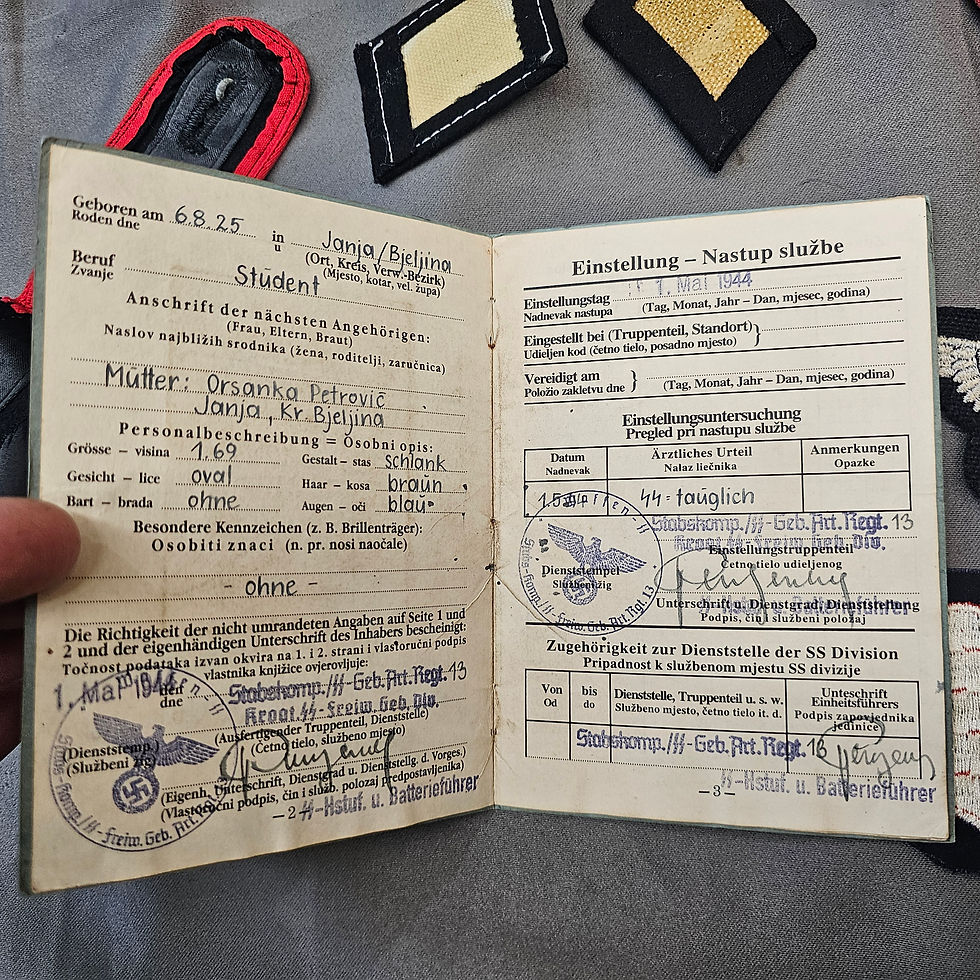 Geboren am 6.8.25 in Janja/Bjeljina
Roden dne u (Ort, Kreis, Verw.-Bezirk)
(Mjesto, kotar, vel. župa)
Beruf
Zvanje Student
Anschrift der nächsten Angehörigen:
(Frau, Eltern, Braut)
Naslov najbližih srodnika (žena, roditelji, zaručnica)
Mutter: Orsanka Petrovič
Janja, Kr. Bjeljina
Personalbeschreibung = Osobni opis:
Grösse – visina 1.69 Gestalt – stas schlank
Gesicht – lice oval Haar – kosa braun
Bart – brada ohne Augen – oči blau
Besondere Kennzeichen (z. B. Brillenträger):
Osobiti znaci (n. pr. nosi naočale)
- ohne -
Die Richtigkeit der nicht umrandeten Angaben auf Seite 1 und
2 und der eigenhändigen Unterschrift des Inhabers bescheinigt:
Točnost podataka izvan okvira na 1. i 2. strani i vlastoručni podpis
vlastnika knjižice ovjerovljuje:
1. Mai 1944 den
dne
Stabskomp./SS-Geb.Art.Regt. 13
Kroat. SS-Freiw. Geb. Div.
(Ausfertigender Truppenteil, Dienststelle)
(Četno tielo, službno mjesto)
(Dienststemp.)
(Službeni žig)
(Eigenh. Unterschrift, Dienstgrad u. Dienststellg. d. Vorges.)
(Vlastoručni podpis, čin i služb. polozaj predpostavljenika)
– 2 – SS-Hstuf. u. Batterieführer
Einstellung – Nastup službe
1. Mai 1944
Einstellungstag
Nadnevak nastupa (Tag, Monat, Jahr – Dan, mjesec, godina)
Eingestellt bei (Truppenteil, Standort)
Udieljen kod (četno tielo, posadno mjesto)
Vereidigt am
Položio zakletvu dne (Tag, Monat, Jahr – Dan, mjesec, godina)
Einstellungsuntersuchung
Pregled pri nastupu službe
Datum Ärztliches Urteil Anmerkungen
Nadnevak Nalaz liečnika Opazke
SS-tauglich
Stabskomp./SS-Geb.Art.Regt. 13
Kroat. SS-Freiw. Geb. Div.
Einstellungstruppenteil
Četno tielo udieljenog
Dienststempel
Službeni žig
Unterschrift u. Dienstgrad, Dienststellung
SS-Hstuf. u. Batterieführer
Podpis, čin i službeni položaj
Zugehörigkeit zur Dienststelle der SS Division
Pripadnost k službenom mjestu SS divizije
Von bis Dienststelle, Truppenteil u. s. w. Unteschrift
Einheitsführers
Od do Službeno mjesto, četno tielo it. d. Podpis zapovjednika
jedinice
Stabskomp./SS-Geb.Art.Regt. 13
SS-Hstuf. u. Batterieführer
– 3 –